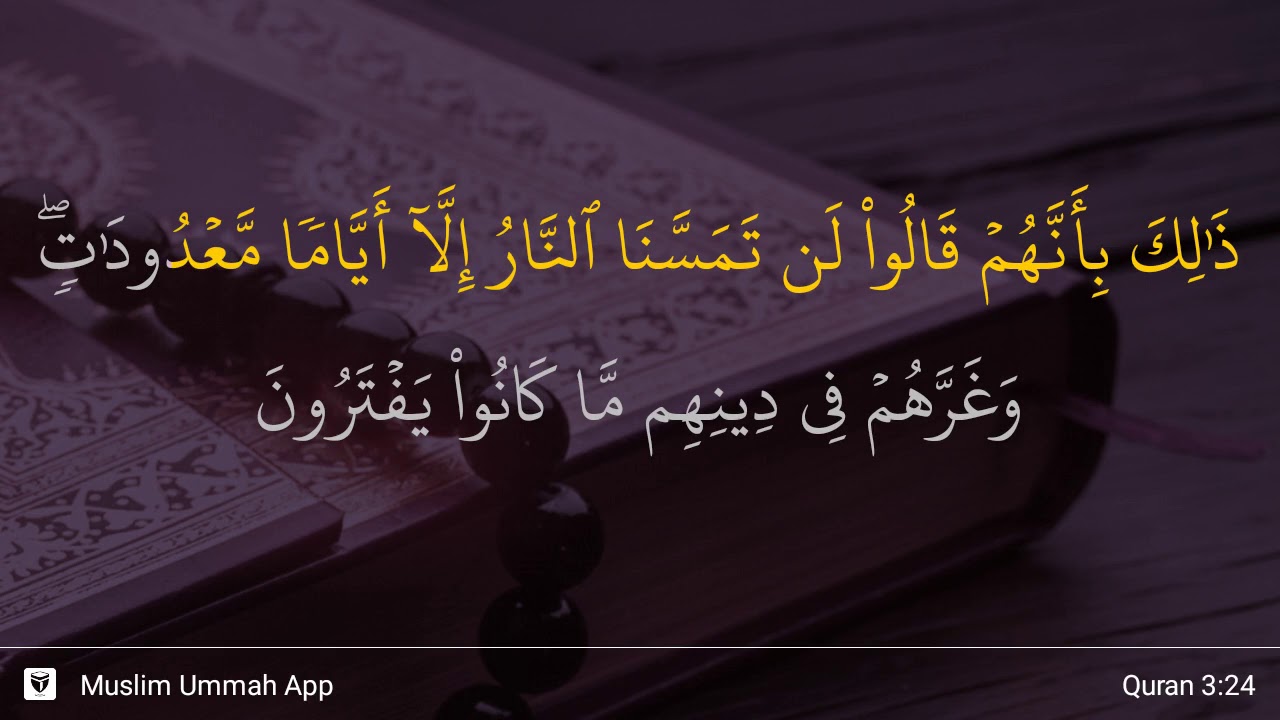 ذَٰلِكَ بِأَنَّهُمۡ قَالُواْ لَن تَمَسَّنَا ٱلنَّارُ إِلَّآ أَيَّامٗا مَّعۡدُودَٰتٖۖ
وَغَرَّهُمۡ فِي دِينِهِم مَّا كَانُواْ يَفۡتَرُونَ
Muslim Ummah App
Quran 3:24